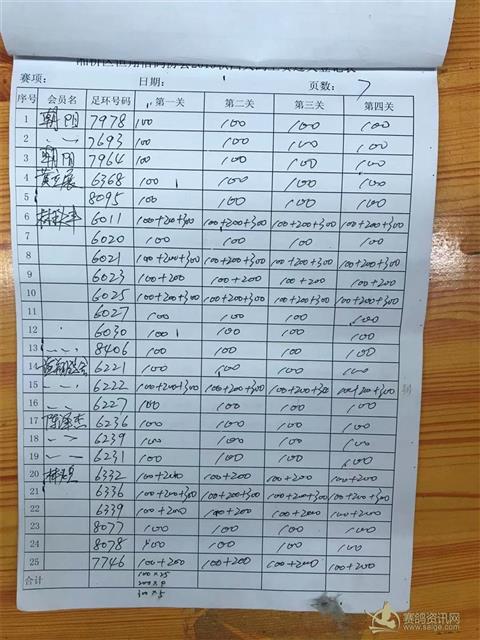 赛项: 日期: 页数: 7
序号 会员名 足环号码 第一关 第二关 第三关 第四关
1 朝阳 7978 100 100 100 100
2 〃 7693 100 100 100 100
3 朝阳 7964 100 100 100 100
4 6368 100 100 100 100
5 8095 100 100 100 100
6 6011 100+200+300 100+200+300 100+200+300 100+200+300
7 6020 100 100 100 100
8 6021 100+200+300 100+200+300 100+200+300 100+200+300
9 6023 100+200 100+200 100+200 100+200
10 6025 100+200+300 100+200+300 100+200+300 100+200+300
11 6027 100 100 100 100
12 6030 100 100 100 100
13 〃 8406 100 100 100 100
14 6221 100 100 100 100
15 〃 6222 100+200+300 100+200+300 100+200+300 100+200+300
16 〃 6227 100 100 100 100
17 陈泽杰 6236 100 100 100 100
18 〃 6239 100 100 100 100
19 〃 6231 100 100 100 100
20 6332 100+200 100+200 100+200 100+200
21 6336 100+200+300 100+200+300 100+200+300 100+200+300
22 6339 100+200 100+200 100+200 100+200
23 8077 100 100 100 100
24 8078 100 100 100 100
25 7746 100+200 100+200 100+200 100+200
合计 100×25
200×9
300×5
赛鸽资讯网
www.saige.com